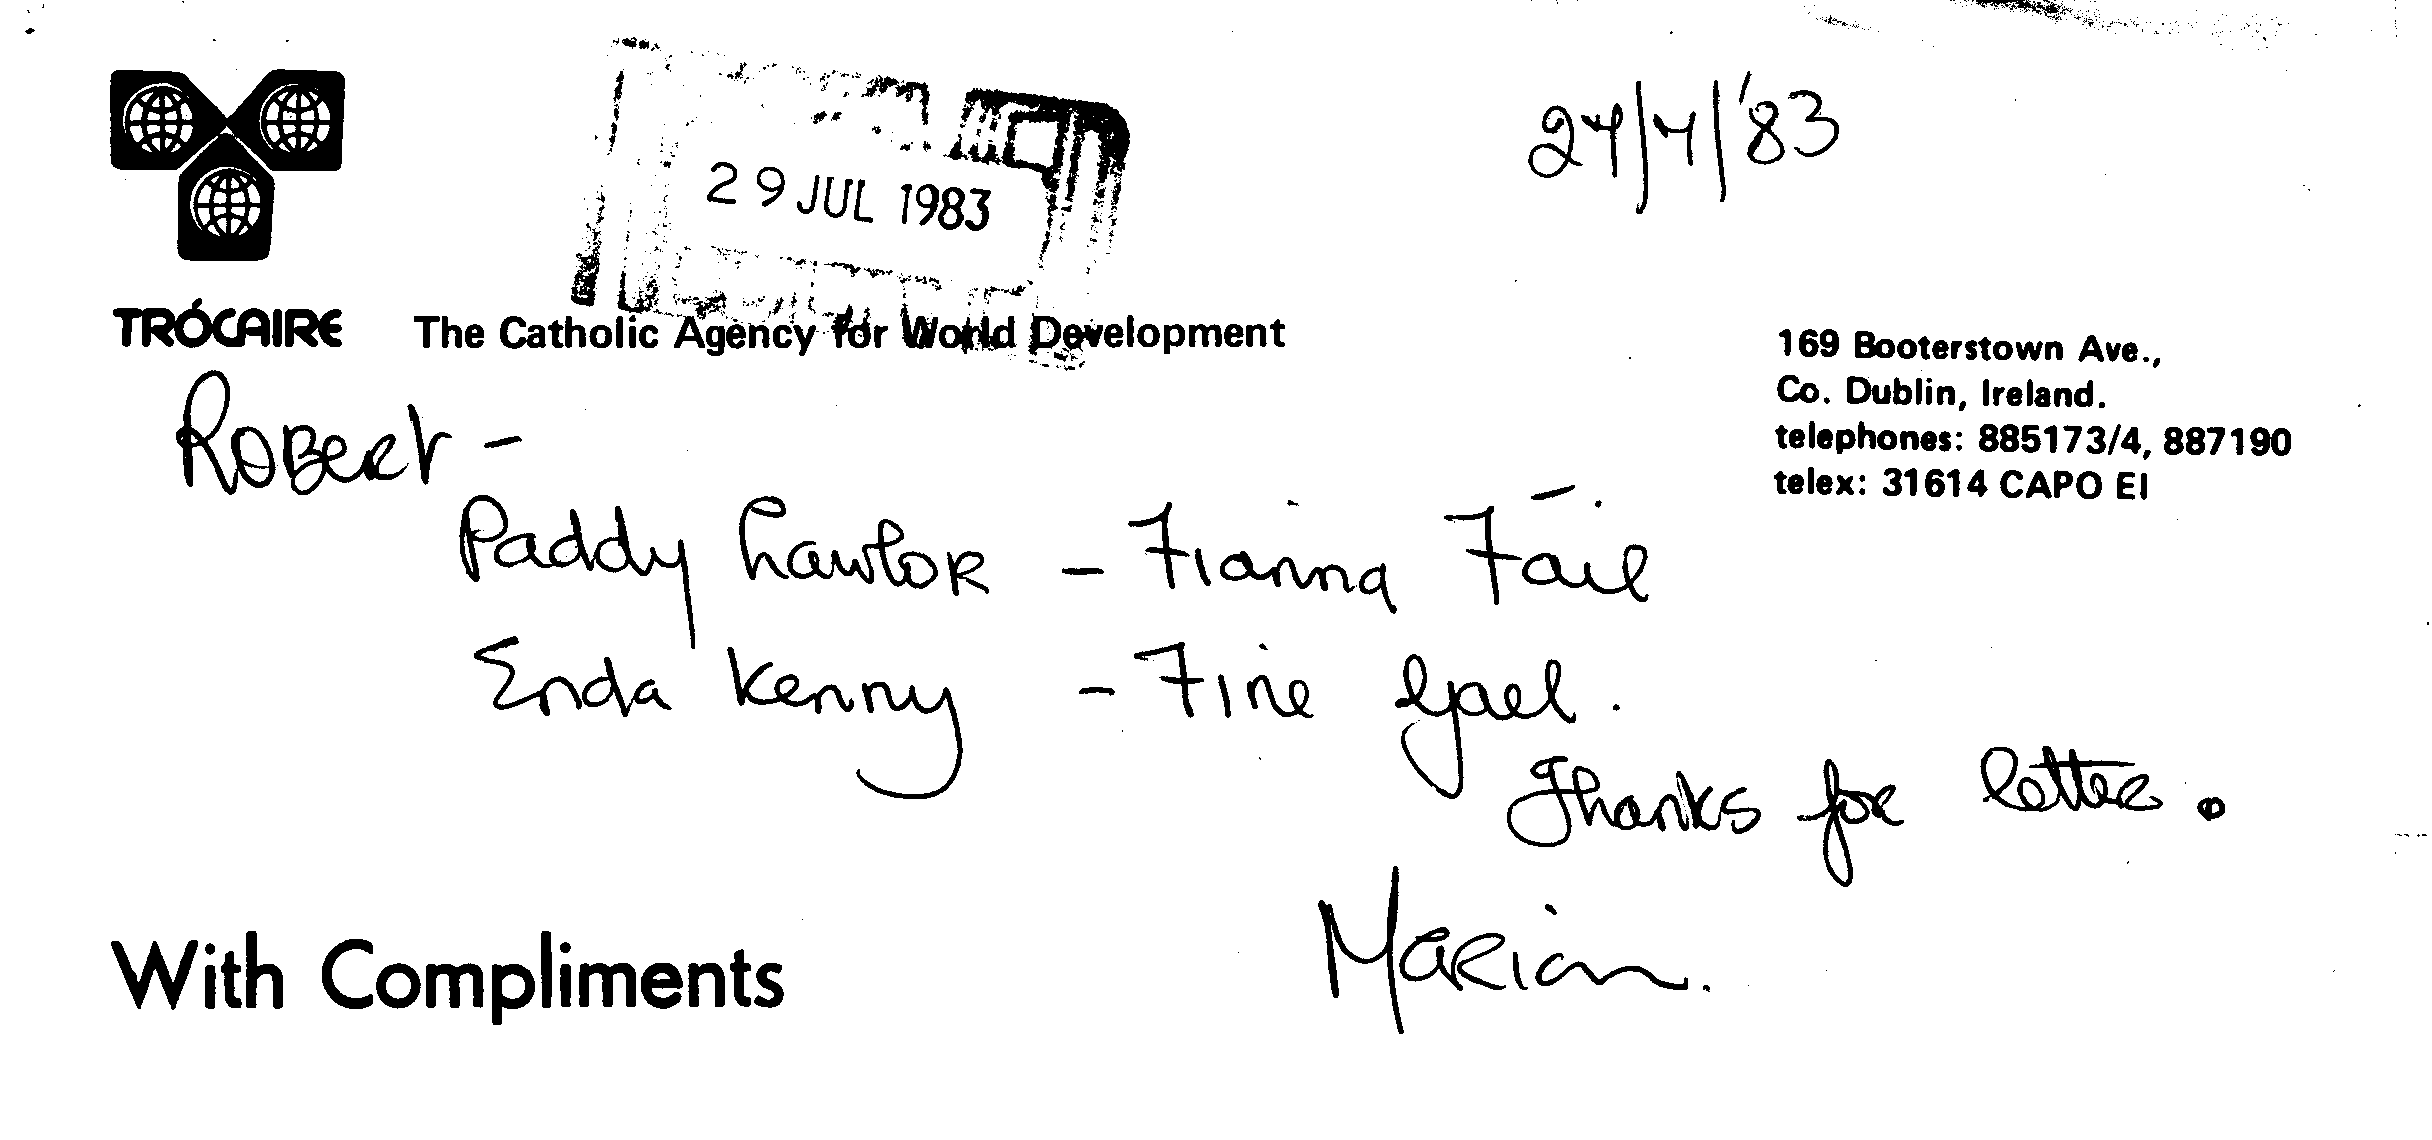 27/7/'83
29 JUL 1983
TRÓCAIRE The Catholic Agency for World Development
169 Booterstown Ave.,
Co. Dublin, Ireland.
telephones: 885173/4, 887190
telex: 31614 CAPO EI
Robert –
Paddy Lawlor – Fianna Fáil
Enda Kenny – Fine Gael.
Thanks for letter.
Marian.
With Compliments